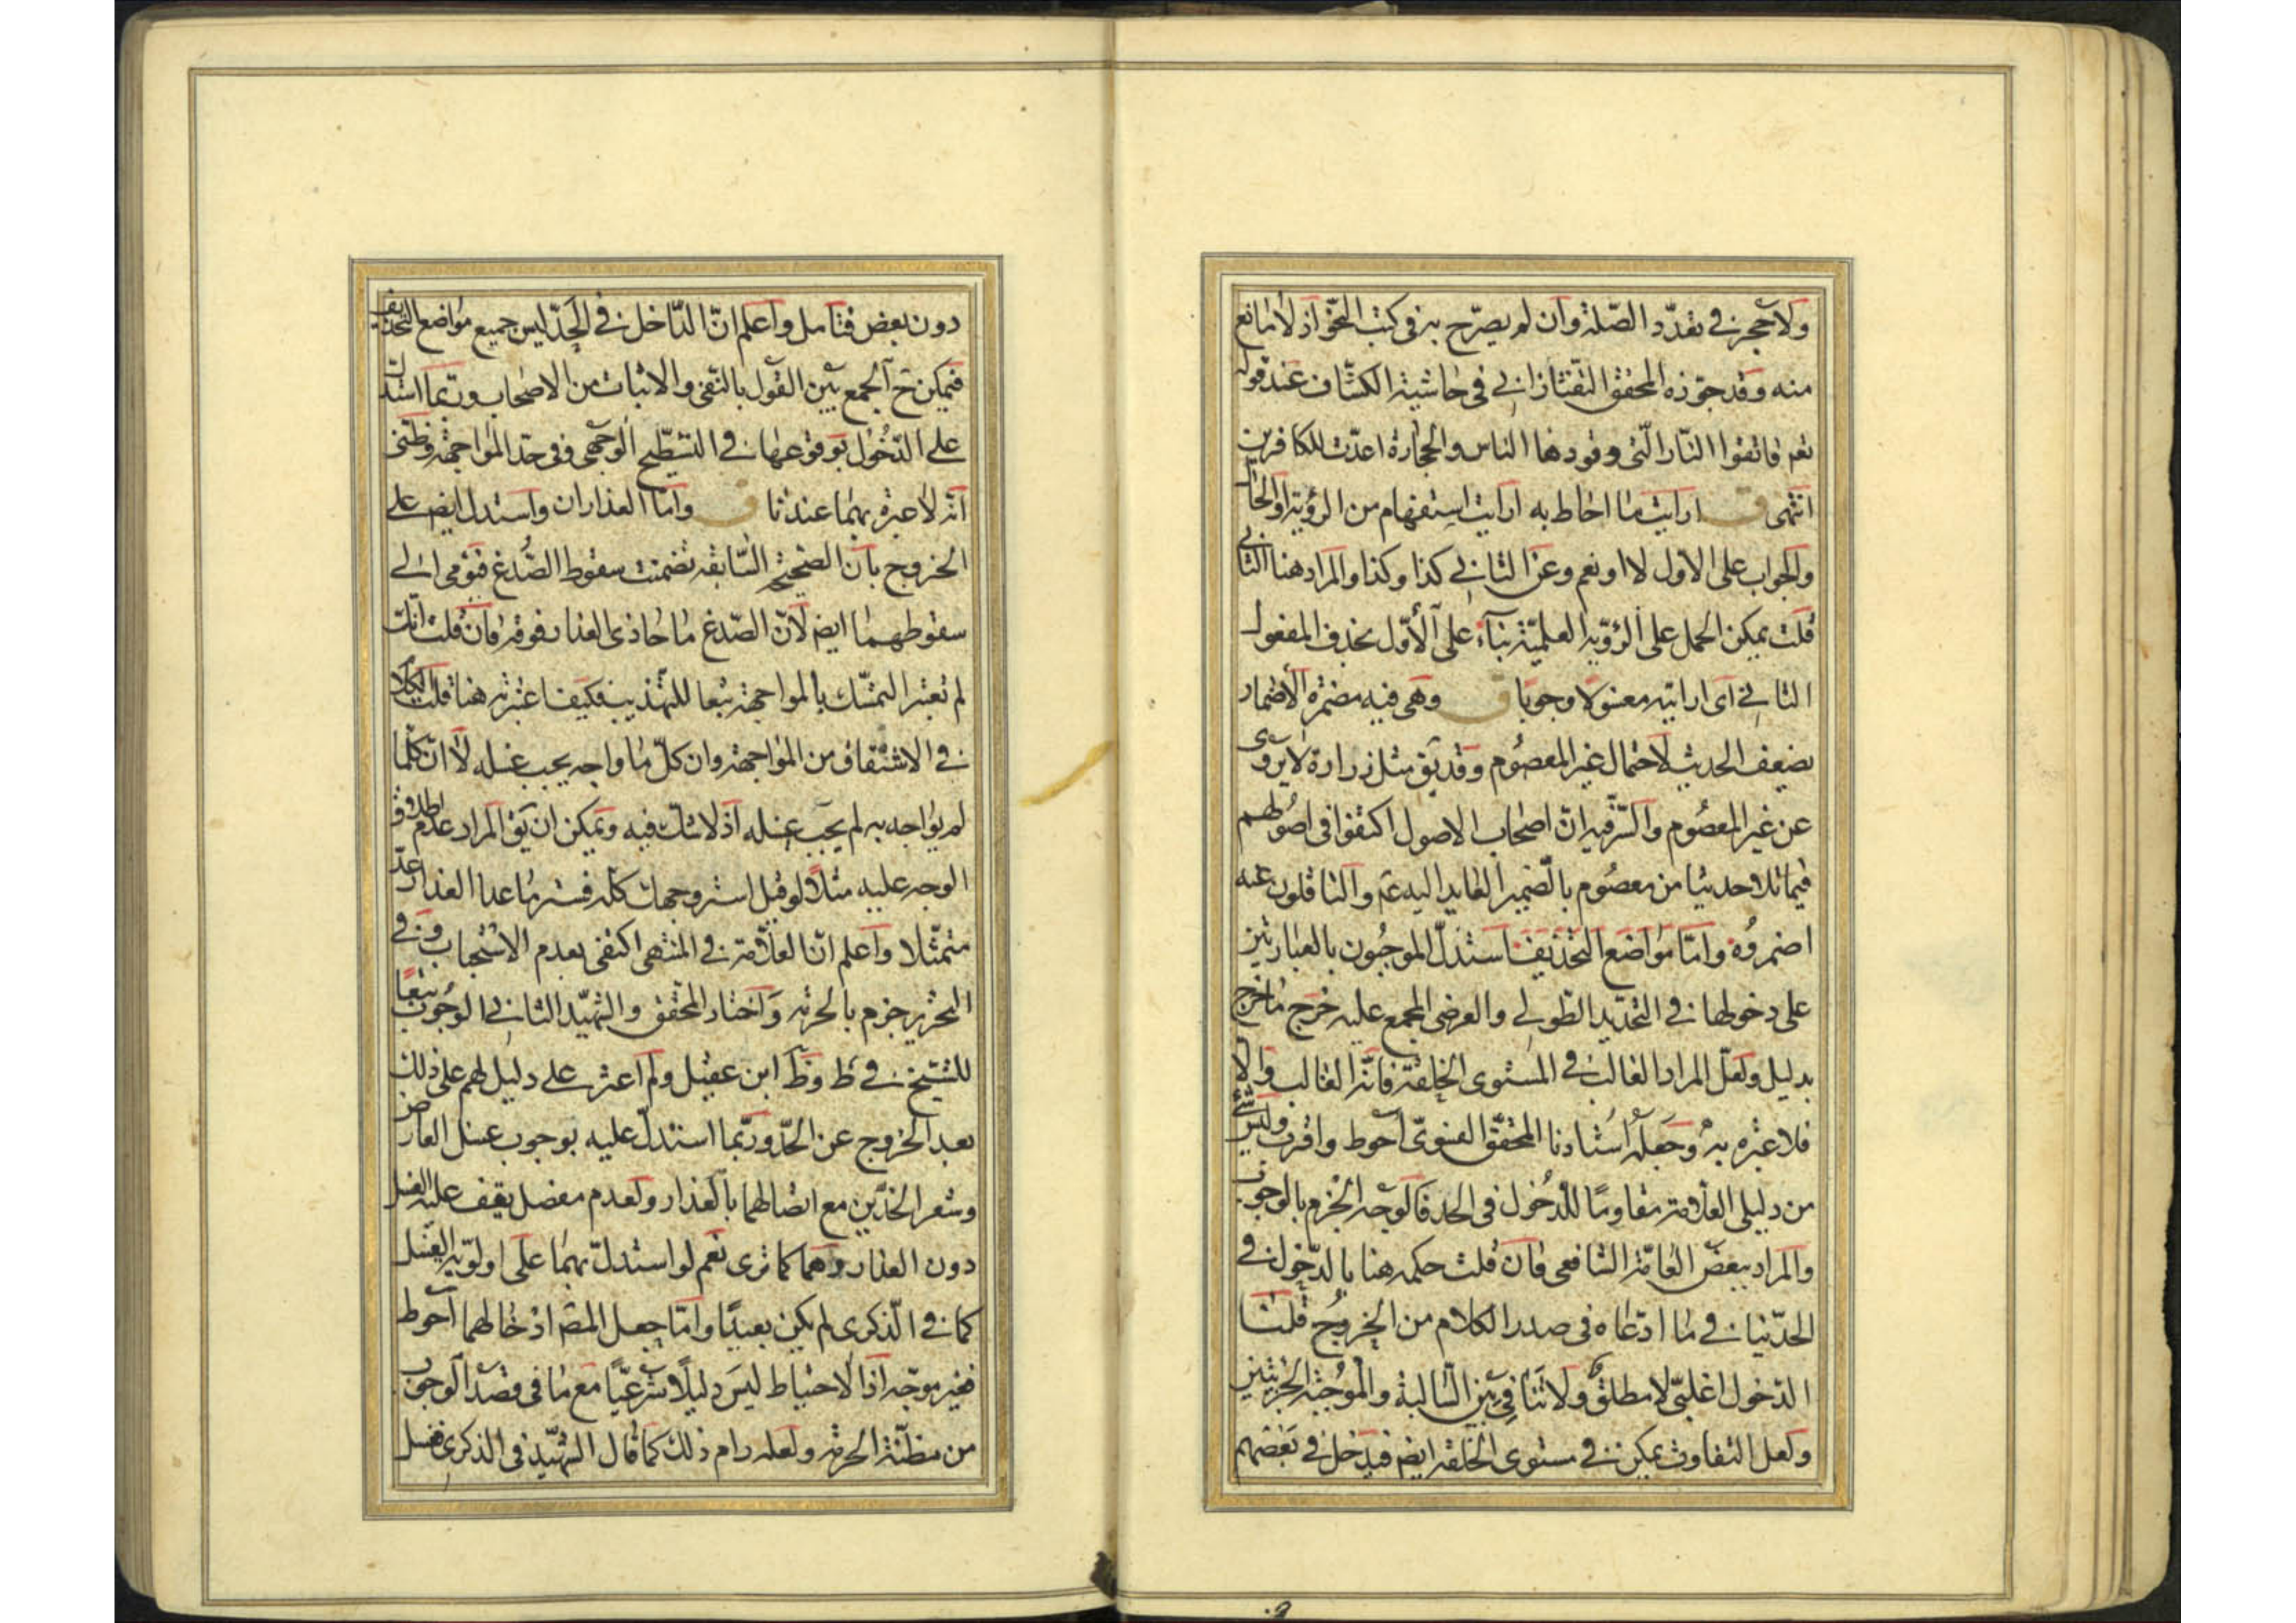 ولا حجر في تعدّد الصّلة وان لم يصرّح به في كتب النحو اذ لا مانع
منه وقد جوّزه المحقق التفتازاني في حاشية الكشّاف عند قوله
تعم فاتقوا النّار الّتى وقودها الناس والحجارة اعدّت للكافرين
انتهى ق ارايت ما احاط به ارايت استفهام من الرؤية او الحال
والجواب على الاول لا او نعم وعن الثاني كذا وكذا والمراد هنا الثاني
قلت يمكن الحمل على الرؤية العلميّة بناء على الأوّل بحذف المفعول
الثاني اى ارايته مغسولا وجوبا ق وهى فيه مضمرة الاضمار
يضعف الحديث لاحتمال غير المعصوم وقد يق مثل زرارة لا يروى
عن غير المعصوم والسّر فيه ان اصحاب الاصول اكتفوا فى اصولهم
فيما تلا حديثا من معصوم بالضمير العايد اليه عم والناقلون عنه
اضمروه وامّا مواضع التحذيف فاستدلّ الموجبون بالعبارتين
على دخولها في التحديد الطولي والعرضى المجمع عليه خرج ما خرج
بدليل ولعلّ المراد الغالب في المستوى الخلقة فانّه الغالب والا
فلا عبرة به وجعله استادنا المحقق الفتوىّ احوط واقرب وليس شئ
من دليلى العلّامة مقاومًا للدخول فى الحد فالوجه الجزم بالوجوب
والمراد ببعض العامّة الشافعى فان قلت حكمه هنا بالدّخول في
الحدّ ينافي ما ادّعاه فى صدر الكلام من الخروج قلنا
الدّخول اغلبىّ لا مطلق ولا تنافى بين السّالبة والموجبة الجزئيتين
ولعل التفاوت يمكن في مستوى الخلقة ايض فيدخل في بعضهم
دون بعض فتامل واعلم انّ الدّاخل في الحدّ ليس جميع مواضع التحذيف
فيمكن ح الجمع بين القول بالنّفى والاثبات من الاصحاب وربّما استدل
على الدّخول بوقوعها في التسطيح الوجهى وفى حدّ المواجهة وظنّى
انّه لا عبرة بهما عندنا ق وامّا العذاران واستدل ايض على
الخروج بان الصحيحة السّابقة تضمنت سقوط الصّدغ فيومى الى
سقوطهما ايض لأنّ الصّدغ ما حاذى العذار فوقه فان قلت انّك
لم تعتبر التمسّك بالمواجهة تبعا للتهذيب فكيف اعتبرته هنا قلت الكلام
في الاشتقاق من المواجهة وان كلّ ما واجه يجب غسله لا ان كلّما
لم يواجه به لم يجب غسله اذ لا شك فيه ويمكن ان يق المراد عدم اطلاق
الوجه عليه مثلاً لو قيل استر وجهك كلّه فستر ما عدا العذار عدّ
متمثّلا واعلم انّ العلّامة في المنتهى اكتفى بعدم الاستحباب وفي
التحرير جزم بالحرمة واختار المحقق والشهيد الثاني الوجوب تبعًا
للشيخ في ط وظ ابن عقيل ولم اعثر على دليل لهم على ذلك
بعد الخروج عن الحدّ وربّما استدلّ عليه بوجوب غسل العارض
وشعر الخدّين مع اتصالهما بالعذار ولعدم مفصل يقف عليه الغسل
دون العذار وهما كما ترى نعم لو استدلّ بهما على اولويّة الغسل
كما في الذكرى لم يكن بعيدًا وامّا جعل المصّ ادخالهما احوط
فغير موجّه اذ الاحتياط ليس دليلاً شرعيّا مع ما فى قصد الوجوب
من مظنّة الحرمة ولعله رام ذلك كما قال الشهيد فى الذكرى غسل